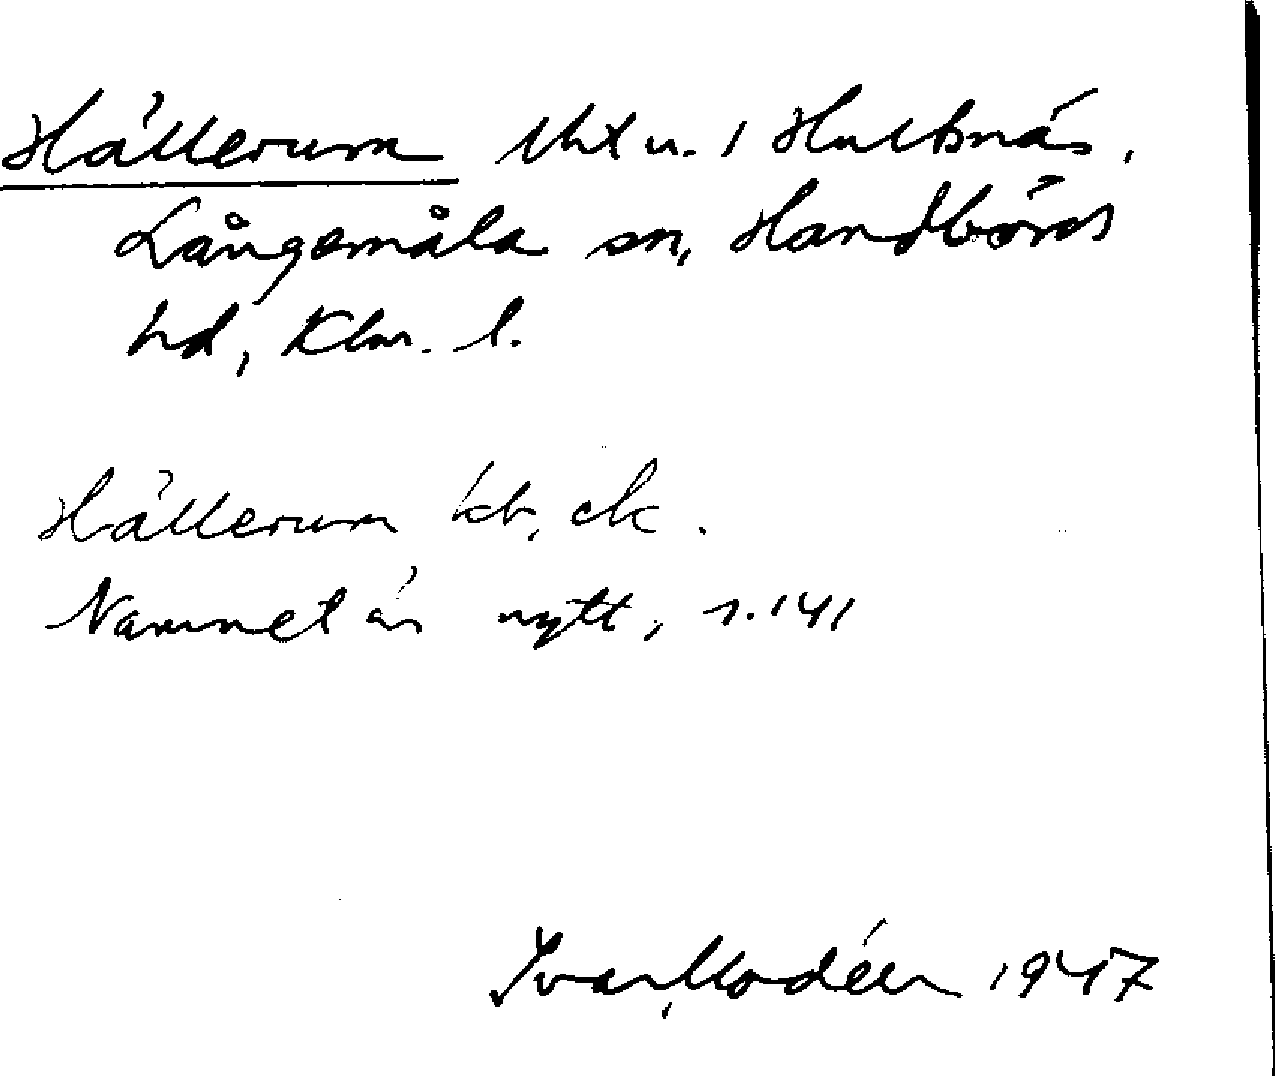 Hällerum lht u. / Hultsnäs,
Långemåla sn, Handbörds
hd, Klm. l.
Hällerum kb, ek.
Namnet är nytt, s. 141
Ivar Modéer 1947